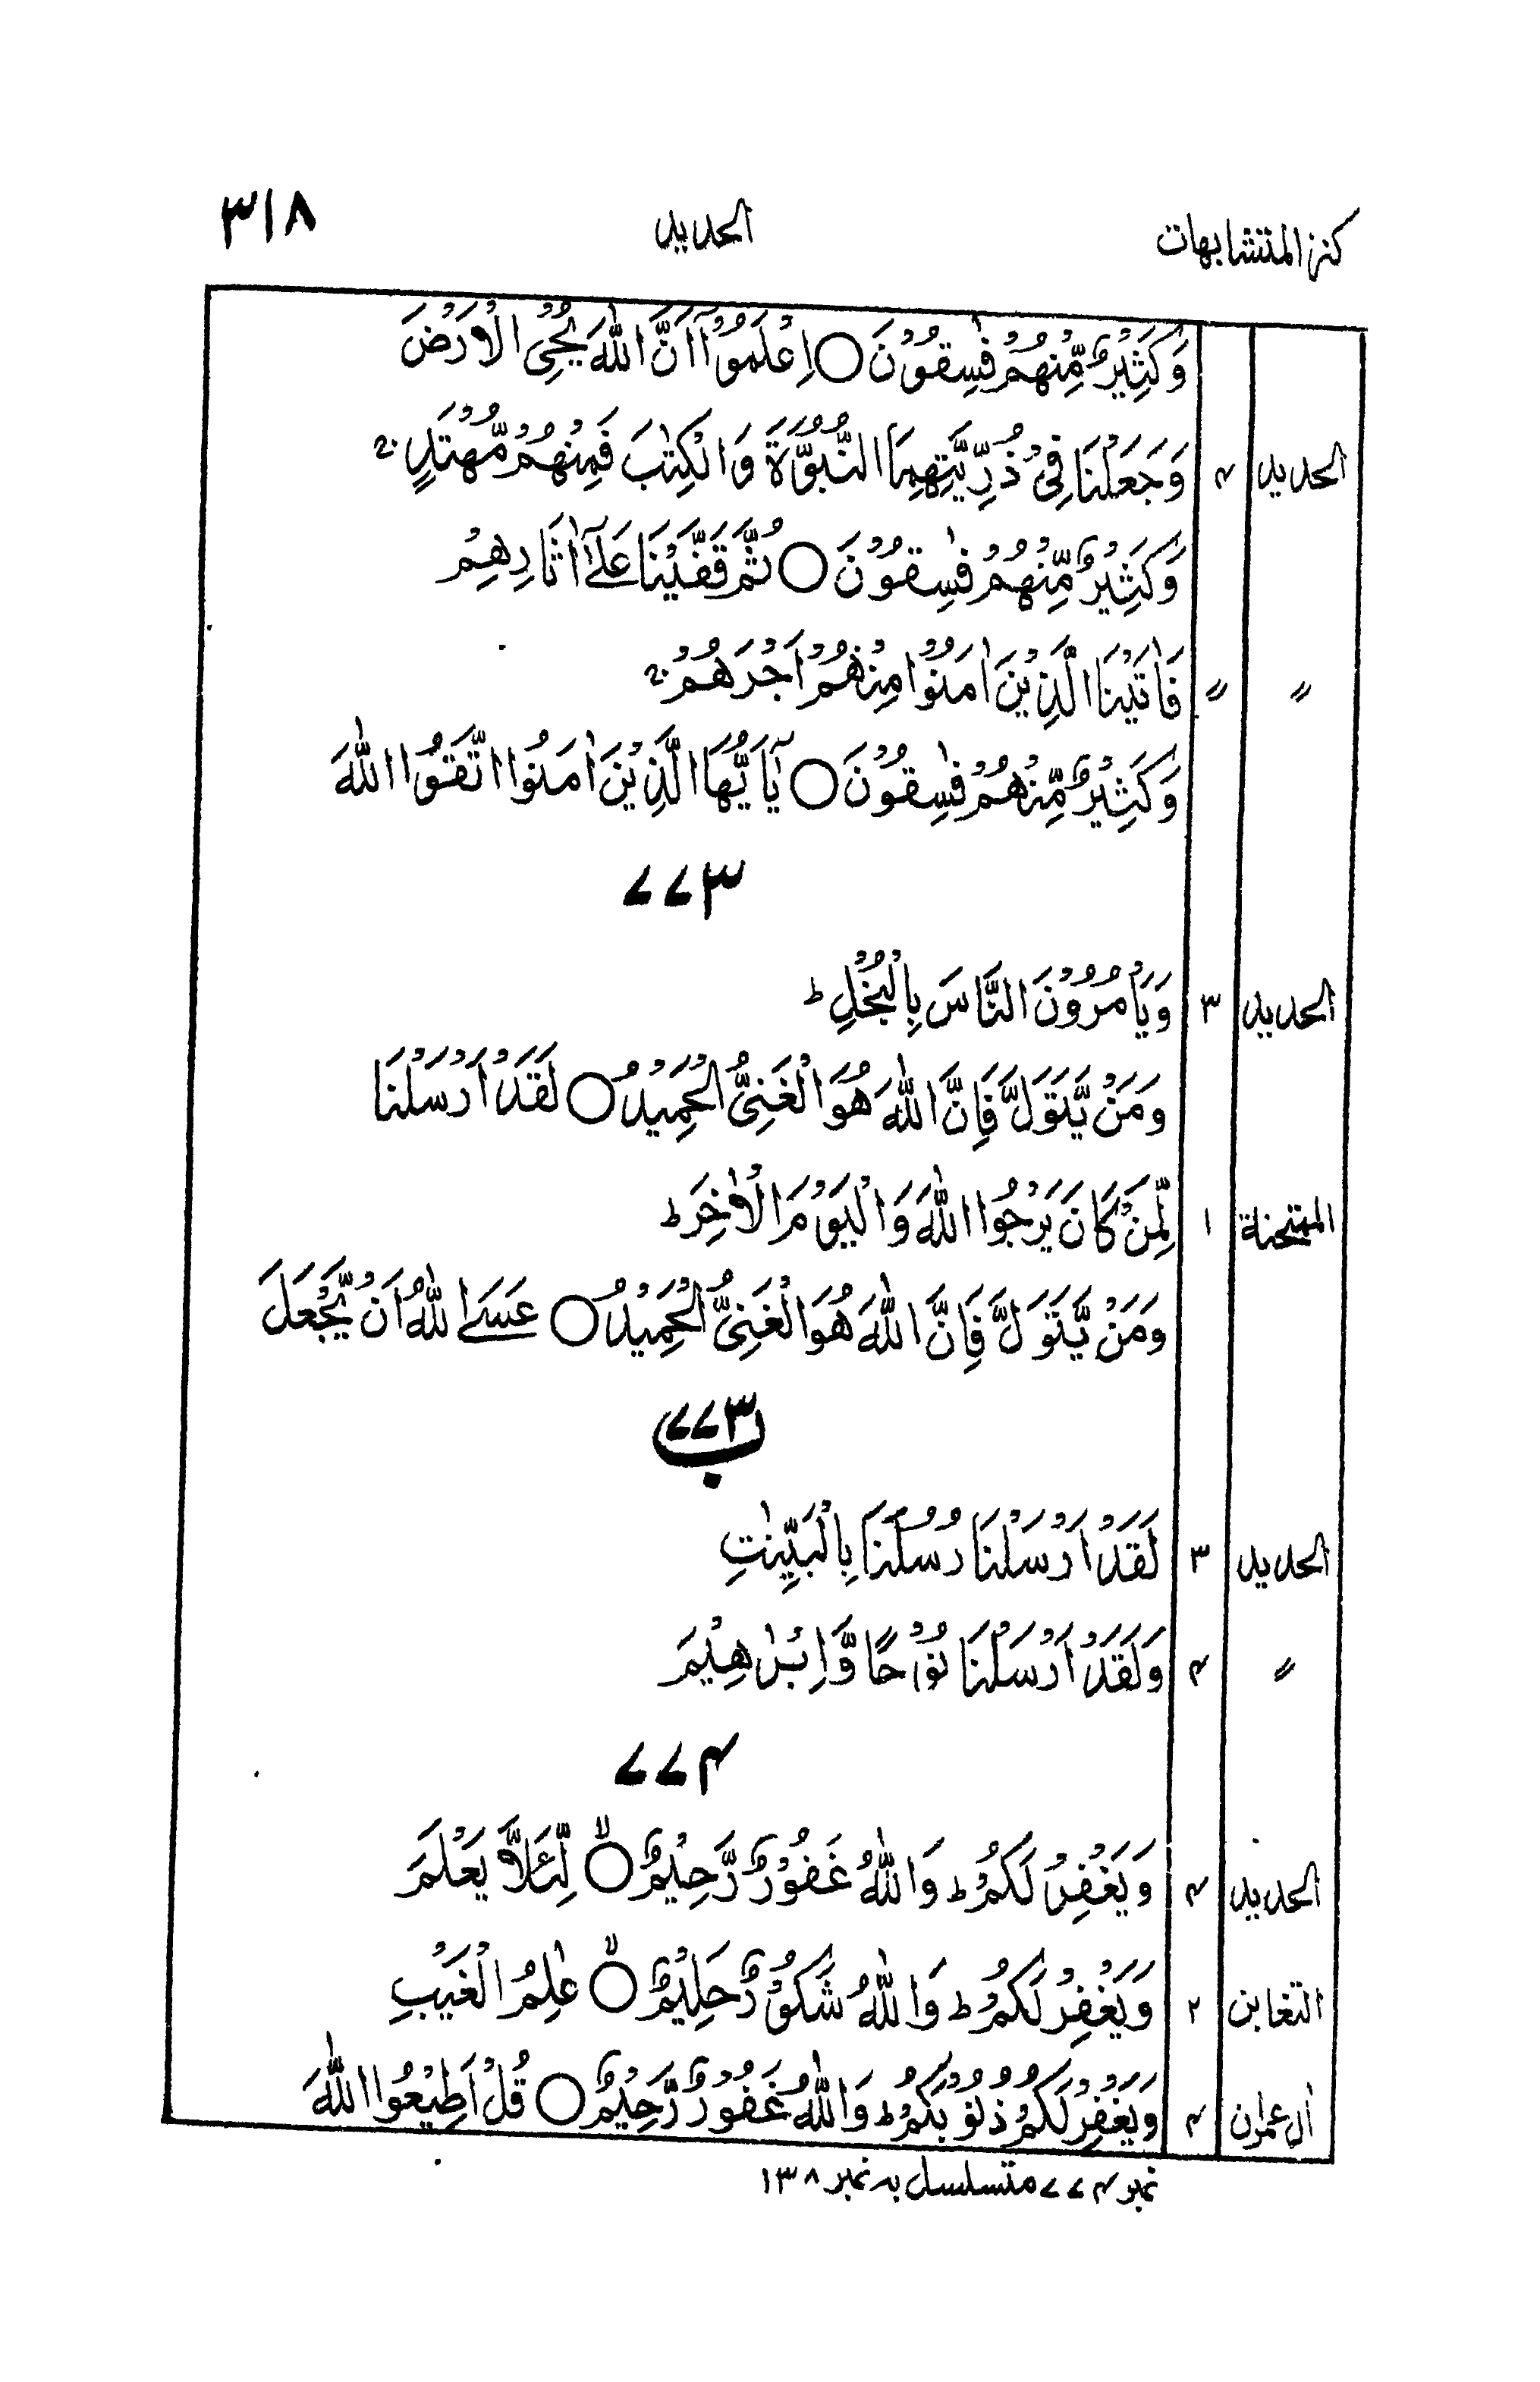 كنز المتشابهات الحديد ٣١٨
وَكَثِيْرٌ مِّنْهُمْ فٰسِقُوْنَ ○ اِعْلَمُوْٓا اَنَّ اللّٰهَ يُحْيِ الْاَرْضَ
الحديد ۴ وَجَعَلْنَا فِيْ ذُرِّيَّتِهِمَا النُّبُوَّةَ وَالْكِتٰبَ فَمِنْهُمْ مُّهْتَدٍ ۚ
وَكَثِيْرٌ مِّنْهُمْ فٰسِقُوْنَ ○ ثُمَّ قَفَّيْنَا عَلٰٓى اٰثَارِهِمْ
〃 〃 فَاٰتَيْنَا الَّذِيْنَ اٰمَنُوْا مِنْهُمْ اَجْرَهُمْ ۚ
وَكَثِيْرٌ مِّنْهُمْ فٰسِقُوْنَ ○ يٰٓاَيُّهَا الَّذِيْنَ اٰمَنُوا اتَّقُوا اللّٰهَ
۷۷۳
الحديد ٣ وَيَاْمُرُوْنَ النَّاسَ بِالْبُخْلِ ؕ
وَمَنْ يَّتَوَلَّ فَاِنَّ اللّٰهَ هُوَ الْغَنِيُّ الْحَمِيْدُ ○ لَقَدْ اَرْسَلْنَا
الممتحنة ١ لِّمَنْ كَانَ يَرْجُوا اللّٰهَ وَالْيَوْمَ الْاٰخِرَ ؕ
وَمَنْ يَّتَوَلَّ فَاِنَّ اللّٰهَ هُوَ الْغَنِيُّ الْحَمِيْدُ ○ عَسَى اللّٰهُ اَنْ يَّجْعَلَ
۷۷۳ ب
الحديد ٣ لَقَدْ اَرْسَلْنَا رُسُلَنَا بِالْبَيِّنٰتِ
〃 ۴ وَلَقَدْ اَرْسَلْنَا نُوْحًا وَّاِبْرٰهِيْمَ
۷۷۴
الحديد ۴ وَيَغْفِرْ لَكُمْ ؕ وَاللّٰهُ غَفُوْرٌ رَّحِيْمٌ ○ۙ لِّئَلَّا يَعْلَمَ
التغابن ٢ وَيَغْفِرْ لَكُمْ ؕ وَاللّٰهُ شَكُوْرٌ حَلِيْمٌ ○ۙ عٰلِمُ الْغَيْبِ
اٰل عمرٰن ۴ وَيَغْفِرْ لَكُمْ ذُنُوْبَكُمْ ؕ وَاللّٰهُ غَفُوْرٌ رَّحِيْمٌ ○ قُلْ اَطِيْعُوا اللّٰهَ
نمبر ۷۷۴ متسلسل بہ نمبر ١٣٨